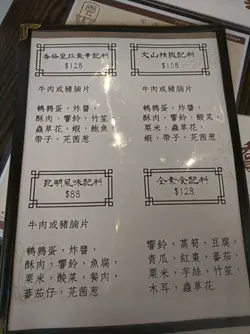 香格里拉豪華配料
$128
牛肉或豬腩片
鵪鶉蛋,炸醬,
酥肉,響鈴,竹笙
蟲草花,蝦,鮑魚
帶子,芫茜蔥
文山辣酸配料
$108
牛肉或豬腩片
鵪鶉蛋,炸醬,
酥肉,響鈴,酸菜,
粟米,蟲草花,
蝦,帶子,芫茜蔥
昆明風味配料
$88
牛肉或豬腩片
鵪鶉蛋,炸醬,
酥肉,響鈴,魚腐,
粟米,酸菜,餐肉,
番茄仔,芫茜蔥
全素食配料
$128
響鈴,蒿筍,豆腐
青瓜,紅棗,番茄,
粟米,芋絲,竹笙,
木耳,蟲草花